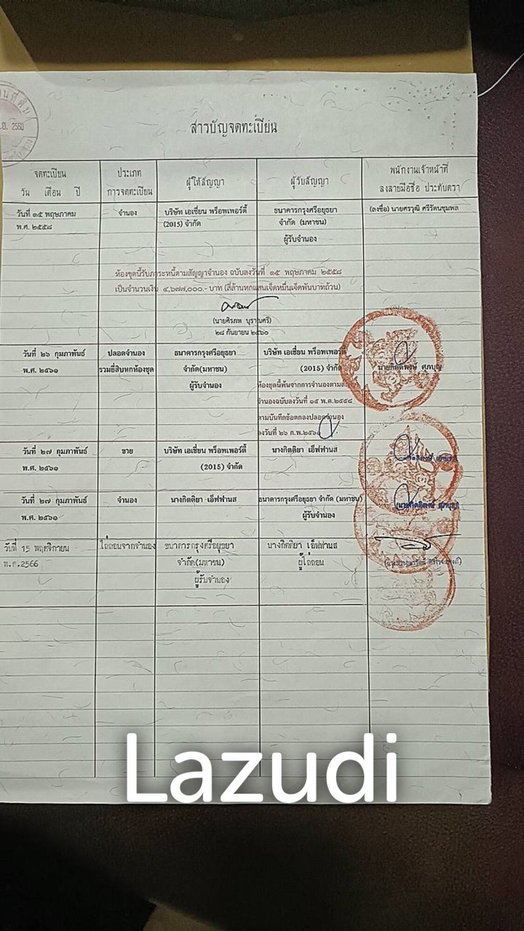 พ.ศ. 2560
สารบัญจดทะเบียน
จดทะเบียน
วัน เดือน ปี
ประเภท
การจดทะเบียน
ผู้ให้สัญญา
ผู้รับสัญญา
พนักงานเจ้าหน้าที่
ลงลายมือชื่อ ประทับตรา
วันที่ ๑๕ พฤษภาคม
พ.ศ. ๒๕๕๘
จำนอง
บริษัท เอเชี่ยน พร็อพเพอร์ตี้
(2015) จำกัด
ธนาคารกรุงศรีอยุธยา
จำกัด (มหาชน)
ผู้รับจำนอง
(ลงชื่อ) นายศราวุฒิ ศรีรัตนชุมพล
ห้องชุดนี้รับภาระหนี้ตามสัญญาจำนอง ฉบับลงวันที่ ๑๕ พฤษภาคม ๒๕๕๘
เป็นจำนวนเงิน ๔,๖๗๗,๐๐๐.- บาท (สี่ล้านหกแสนเจ็ดหมื่นเจ็ดพันบาทถ้วน)
๒๘ กันยายน ๒๕๖๐
วันที่ ๒๖ กุมภาพันธ์
พ.ศ. ๒๕๖๑
ปลอดจำนอง
รวมยี่สิบหกห้องชุด
ธนาคารกรุงศรีอยุธยา
จำกัด(มหาชน)
ผู้รับจำนอง
บริษัท เอเชี่ยน พร็อพเพอร์ตี้
(2015) จำกัด
ห้องชุดนี้พ้นจากการจำนองตาม
จำนองฉบับลงวันที่ ๑๕ พ.ค.๒๕๕๘
ตามบันทึกข้อตกลงปลอดจำนอง
ลงวันที่ ๒๖ ก.พ.๒๕๖๑
วันที่ ๒๗ กุมภาพันธ์
พ.ศ. ๒๕๖๑
ขาย
บริษัท เอเชี่ยน พร็อพเพอร์ตี้
(2015) จำกัด
นางกิตติยา เอ็ฟฟานส
วันที่ ๒๗ กุมภาพันธ์
พ.ศ. ๒๕๖๑
จำนอง
นางกิตติยา เอ็ฟฟานส
ธนาคารกรุงศรีอยุธยา จำกัด (มหาชน)
ผู้รับจำนอง
วันที่ 15 พฤศจิกายน
พ.ศ.2566
ไถ่ถอนจากจำนอง
ธนาคารกรุงศรีอยุธยา
จำกัด(มหาชน)
ผู้รับจำนอง
นางกิตติยา เอ็ฟฟานส
ผู้ไถ่ถอน
Lazudi